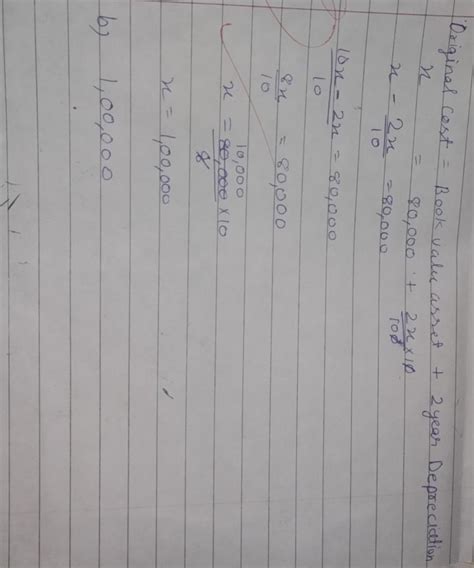 Original Cost = Book valu asset + 2 year Depreciation
x = 80,000 + 2x × 10 / 100
x - 2x/10 = 80,000
10x - 2x / 10 = 80,000
8x / 10 = 80,000
x = 80,000 × 10 / 8 10,000
x = 1,00,000
b) 1,00,000